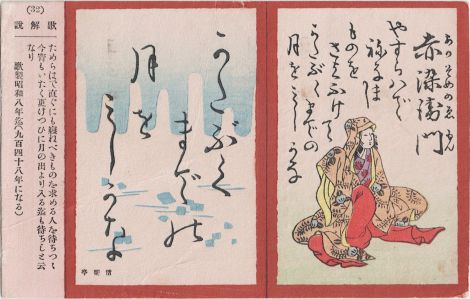 赤染衛門
あかぞめのゑもん
やすらハで
ねなまし
ものを
さよふけて
かたぶくまでの
月をみしかな
かたぶく
までの
月
を
みしかな
(32)
歌解説
ためらはで直ぐにも寝ぬべきものを求める人を待ちつゝ
今宵もいたく更けつひに月の出より入る迄も待ちしと云
なり
歌製昭和八年迄(九百四十八年になる)